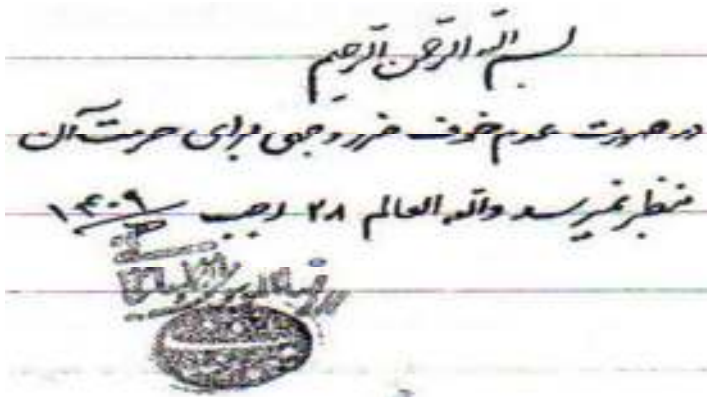 بسم الله الرحمن الرحیم
در صورت عدم خوف ضرر وجهی برای حرمت آن
بنظر نمیرسد والله العالم ۲۸ رجب ۱۴۰۹